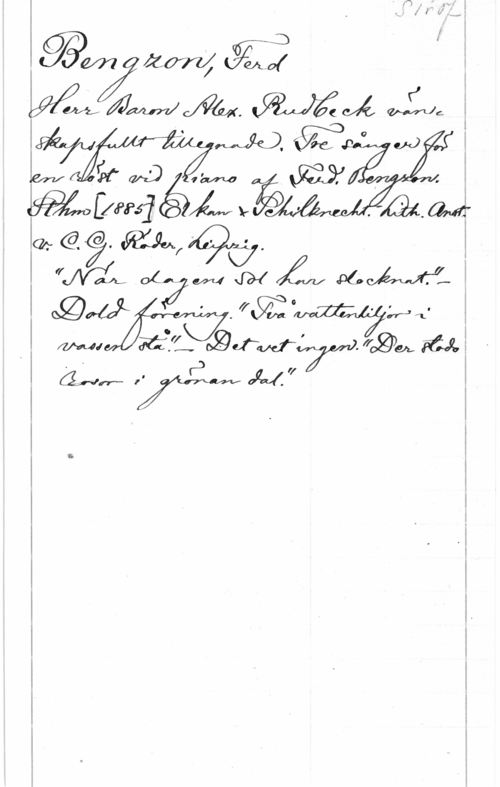 Bengzon, Ferd
Herr Baron Alex. Rudbeck vän-
skapsfullt tillegnade. Tre sånger för
en röst vid piano af Ferd. Bengzon.
Sthm [1885] Elkan & Schildknecht. Lith. Anst.
v. C. G. Röder, Leipzig.
"När dagens sol har slocknat." –
Dold förening. "Två vattenliljor i
vassen stå." – Det vet ingen. "Der stodo
rosor i grönan dal."